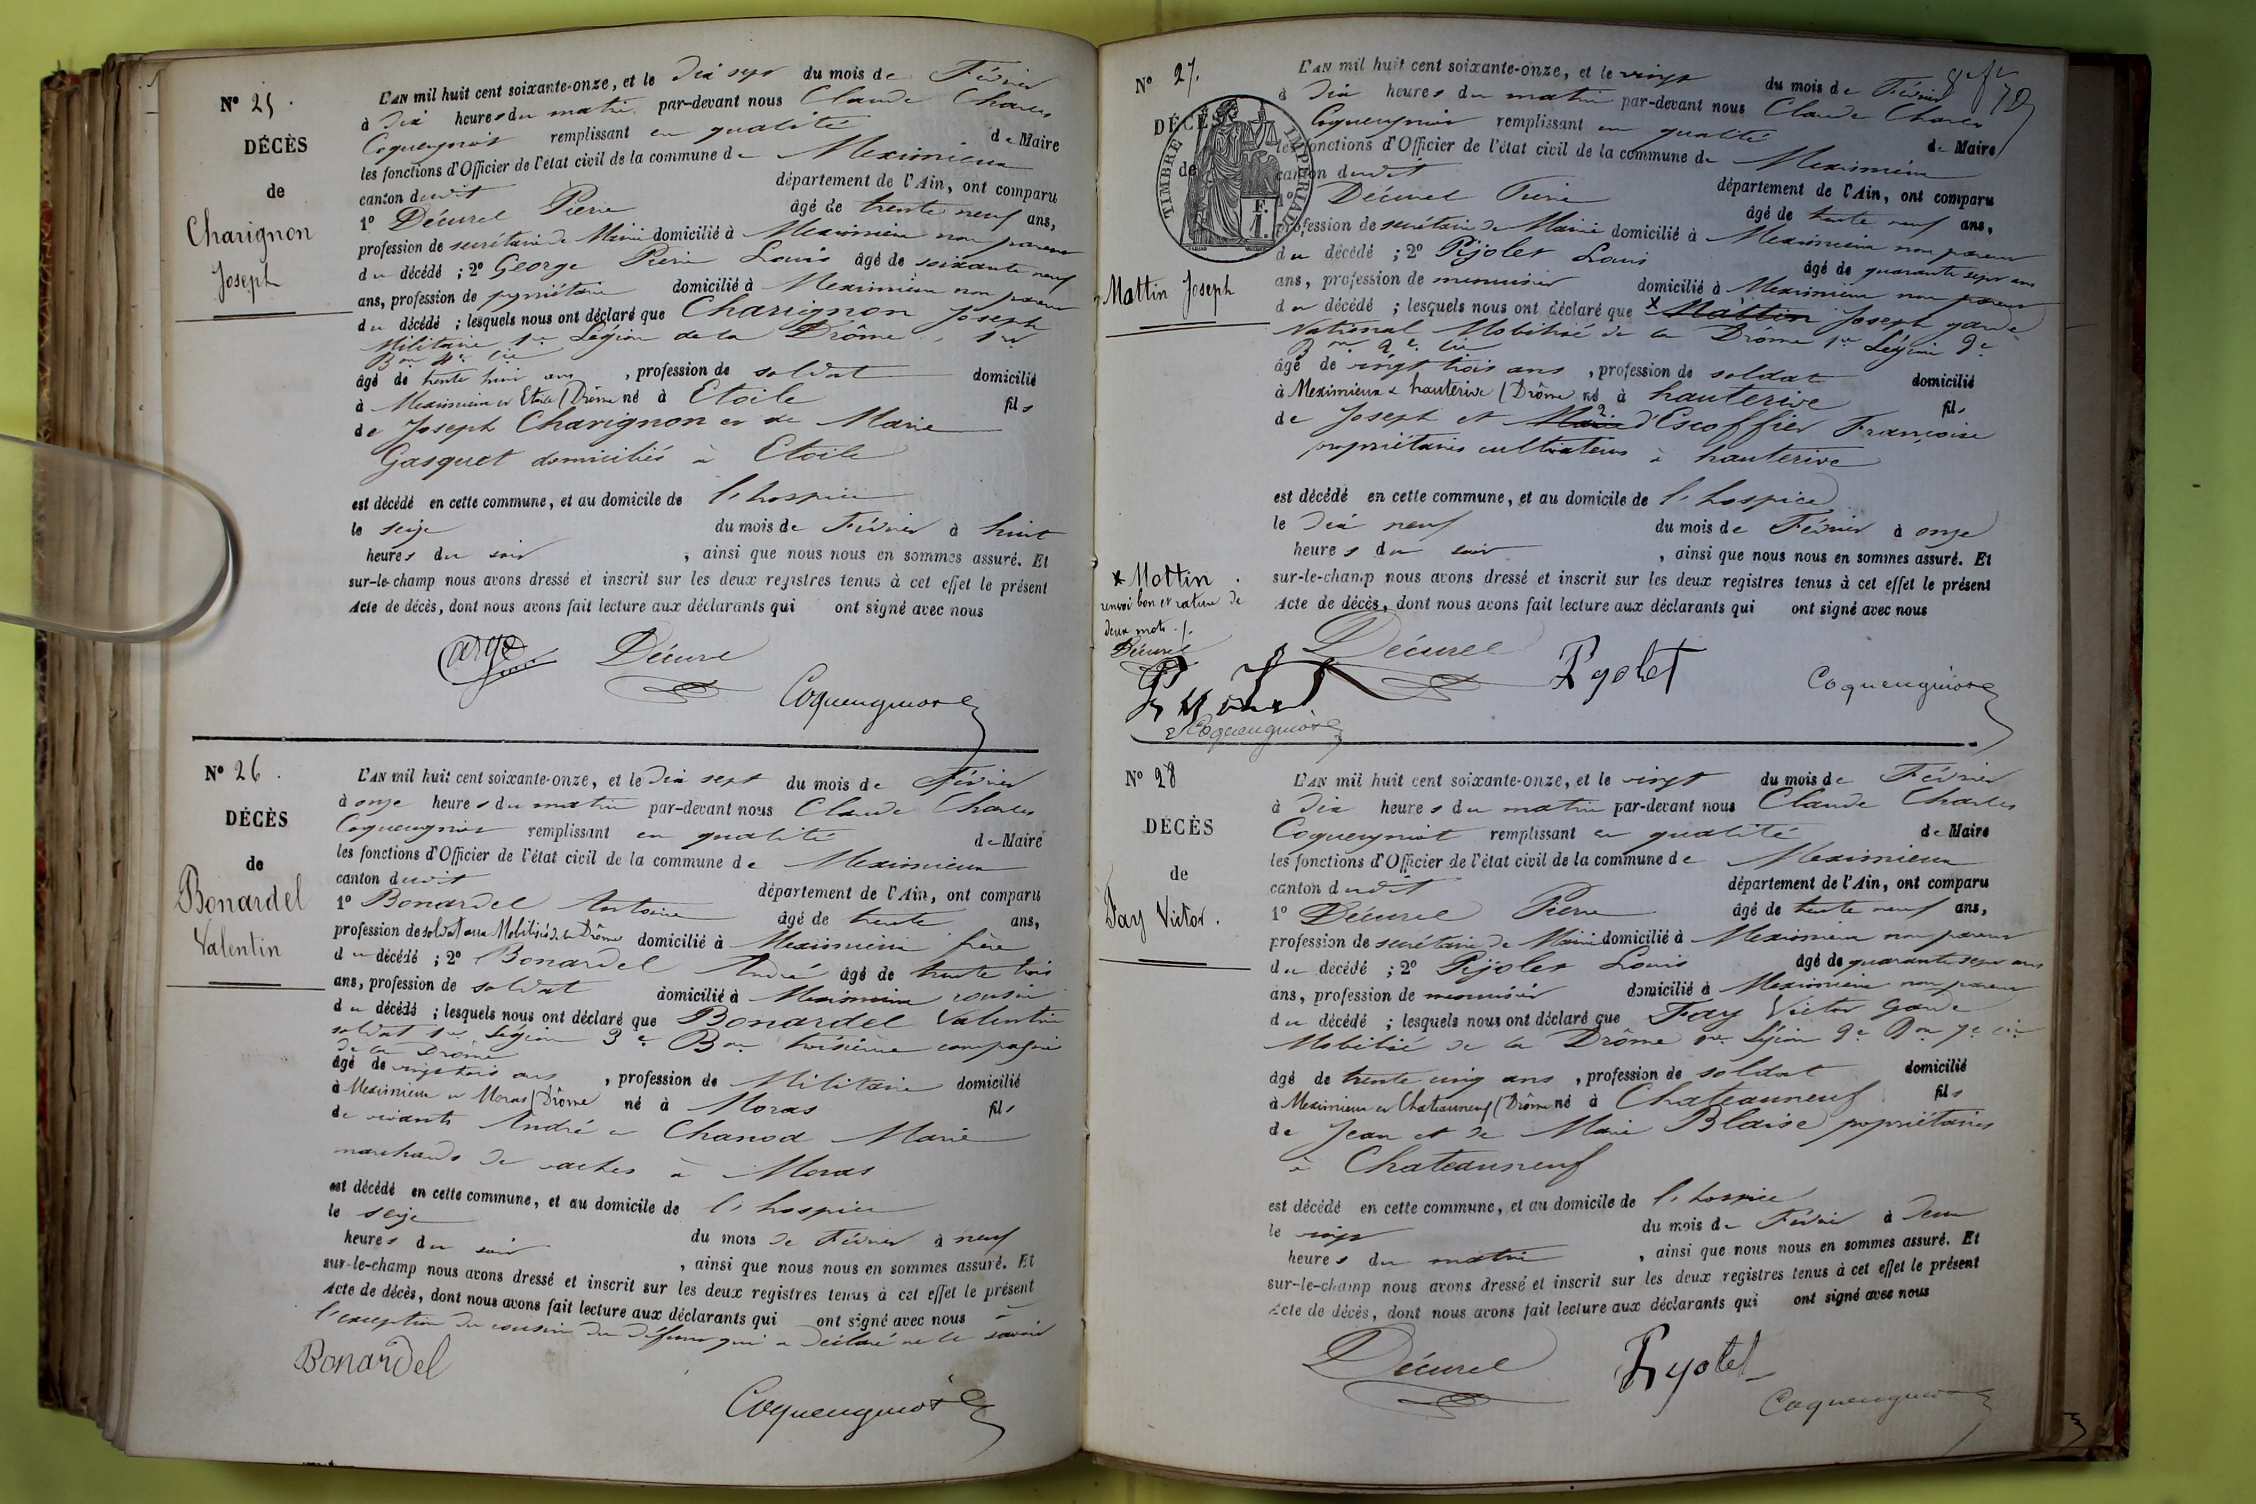 N° 25.
DÉCÈS
de
Charignon
Joseph
L'AN mil huit cent soixante-onze, et le dix sept du mois de Février
à dix heures du matin par-devant nous Claude Charles
Coquengniot remplissant en qualité de Maire
les fonctions d'Officier de l'état civil de la commune de Meximieux
canton dudit département de l'Ain, ont comparu
1° Décurel Pierre âgé de trente neuf ans,
profession de secrétaire de Mairie domicilié à Meximieux non parent
du décédé ; 2° George Pierre Louis âgé de soixante neuf
ans, profession de propriétaire domicilié à Meximieux non parent
du décédé ; lesquels nous ont déclaré que Charignon Joseph
Militaire 1re Légion de la Drôme, 1er
Bon 4e Cie
âgé de trente huit ans, profession de soldat domicilié
à Meximieux et Etoile (Drôme né à Etoile fils
de Joseph Charignon et de Marie
Gasquet domiciliés à Etoile
est décédé en cette commune, et au domicile de l'hospice
le seize du mois de Février à huit
heures du soir, ainsi que nous nous en sommes assuré. Et
sur-le-champ nous avons dressé et inscrit sur les deux registres tenus à cet effet le présent
Acte de décès, dont nous avons fait lecture aux déclarants qui ont signé avec nous
Décurel
Coquengniot
N° 26.
DÉCÈS
de
Bonardel
Valentin
L'AN mil huit cent soixante-onze, et le dix sept du mois de Février
à onze heures du matin par-devant nous Claude Charles
Coquengniot remplissant en qualité de Maire
les fonctions d'Officier de l'état civil de la commune de Meximieux
canton dudit département de l'Ain, ont comparu
1° Bonardel Antoine âgé de trente ans,
profession de soldat aux Mobilisés de la Drôme domicilié à Meximieux frère
du décédé ; 2° Bonardel André âgé de trente trois
ans, profession de soldat domicilié à Meximieux cousin
du décédé ; lesquels nous ont déclaré que Bonardel Valentin
soldat 1re Légion 3e Bon troisième compagnie
de la Drôme
âgé de vingt trois ans, profession de Militaire domicilié
à Meximieux et Moras (Drôme né à Moras fils
de vivants André et Chanod Marie
marchands de vaches à Moras
est décédé en cette commune, et au domicile de l'hospice
le seize du mois de Février à neuf
heures du soir, ainsi que nous nous en sommes assuré. Et
sur-le-champ nous avons dressé et inscrit sur les deux registres tenus à cet effet le présent
Acte de décès, dont nous avons fait lecture aux déclarants qui ont signé avec nous à
l'exception du cousin du défunt qui a déclaré ne le savoir
Bonardel
Coquengniot
N° 27.
DÉCÈS
de
TIMBRE IMPÉRIAL
F.
1.
Mottin Joseph
L'AN mil huit cent soixante-onze, et le vingt du mois de Février
à dix heures du matin par-devant nous Claude Charles
Coquengniot remplissant en qualité de Maire
les fonctions d'Officier de l'état civil de la commune de Meximieux
canton dudit département de l'Ain, ont comparu
1° Décurel Pierre âgé de trente neuf ans,
profession de secrétaire de Mairie domicilié à Meximieux non parent
du décédé ; 2° Pijolet Louis âgé de quarante sept ans
ans, profession de menuisier domicilié à Meximieux non parent
du décédé ; lesquels nous ont déclaré que x Mattin Joseph garde
National Mobilisé de la Drôme 1re Légion 9e
Bon 2e Cie
âgé de vingt trois ans, profession de soldat domicilié
à Meximieux & hauterive (Drôme né à hauterive fils
de Joseph et Marie d'Escoffier Françoise
propriétaires cultivateurs à hauterive
est décédé en cette commune, et au domicile de l'hospice
le dix neuf du mois de Février à onze
heures du soir, ainsi que nous nous en sommes assuré. Et
sur-le-champ nous avons dressé et inscrit sur les deux registres tenus à cet effet le présent
Acte de décès, dont nous avons fait lecture aux déclarants qui ont signé avec nous
x Mottin.
renvoi bon et rature de
deux mots ./.
Décurel
Pyolet
Coquengniot
Décurel
Pyolet
Coquengniot
N° 28
DÉCÈS
de
Fay Victor.
L'AN mil huit cent soixante-onze, et le vingt du mois de Février
à dix heures du matin par-devant nous Claude Charles
Coquengniot remplissant en qualité de Maire
les fonctions d'Officier de l'état civil de la commune de Meximieux
canton dudit département de l'Ain, ont comparu
1° Décurel Pierre âgé de trente neuf ans,
profession de secrétaire de Mairie domicilié à Meximieux non parent
du décédé ; 2° Pijolet Louis âgé de quarante sept ans
ans, profession de menuisier domicilié à Meximieux non parent
du décédé ; lesquels nous ont déclaré que Fay Victor Garde
Mobilisé de la Drôme 1re Légion 9e Bon 7e Cie
âgé de trente cinq ans, profession de soldat domicilié
à Meximieux et Chateauneuf (Drôme né à Chateauneuf fils
de Jean et de Marie Blaise propriétaires
à Chateauneuf
est décédé en cette commune, et au domicile de l'hospice
le vingt du mois de Février à deux
heures du matin, ainsi que nous nous en sommes assuré. Et
sur-le-champ nous avons dressé et inscrit sur les deux registres tenus à cet effet le présent
Acte de décès, dont nous avons fait lecture aux déclarants qui ont signé avec nous
Décurel
Pyolet
Coquengniot